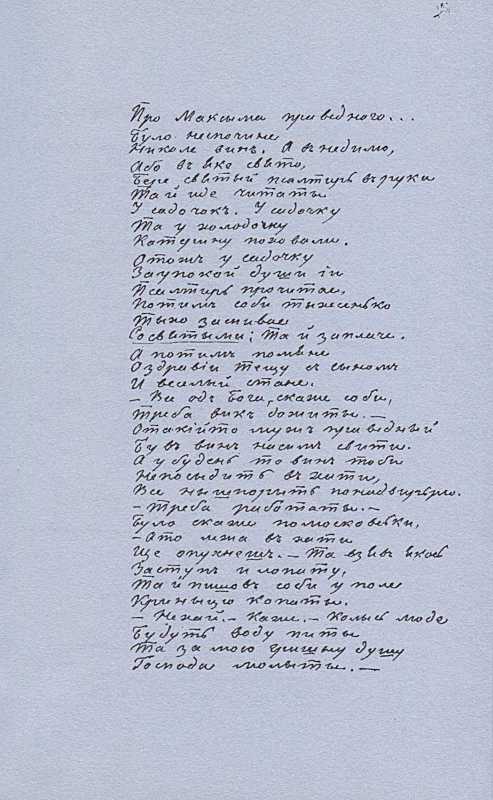 Про Максыма праведного...
Було неспочине
Николе винъ. А въ недилю,
Або въ яке свято,
Бере святый псалтырь въ руки
Та й иде читаты
У садочокъ. У садочку
Та у холодочку
Катрину поховали.
Отожъ у садочку
За упокой души іи
Псалтырь прочитае,
Потимъ соби тыхесенько
Тыхо заспивае
Со святыми; та й заплаче.
А потимъ помяне
О здравіи тещу съ сыномъ
И веселый стане.
— Все одъ Бога, скаже соби,
Треба викъ дожиты. —
Отакійто мужъ праведный
Бувъ винъ на симъ свити.
А у будень то винъ тоби
Непосыдить въ хати,
Все ныщпорить по надвирью.
— Треба работаты. —
Було скаже помосковськи,
— Ато лежа въ хати
Ще опухнешъ. — Та взявъ якось
Заступъ и лопату,
Та й пишовъ соби у поле
Криныцю копаты.
— Нехай. — Каже. — Колысь люде
Будуть воду пыты
Та за мою гришну душу
Господа молыты. —